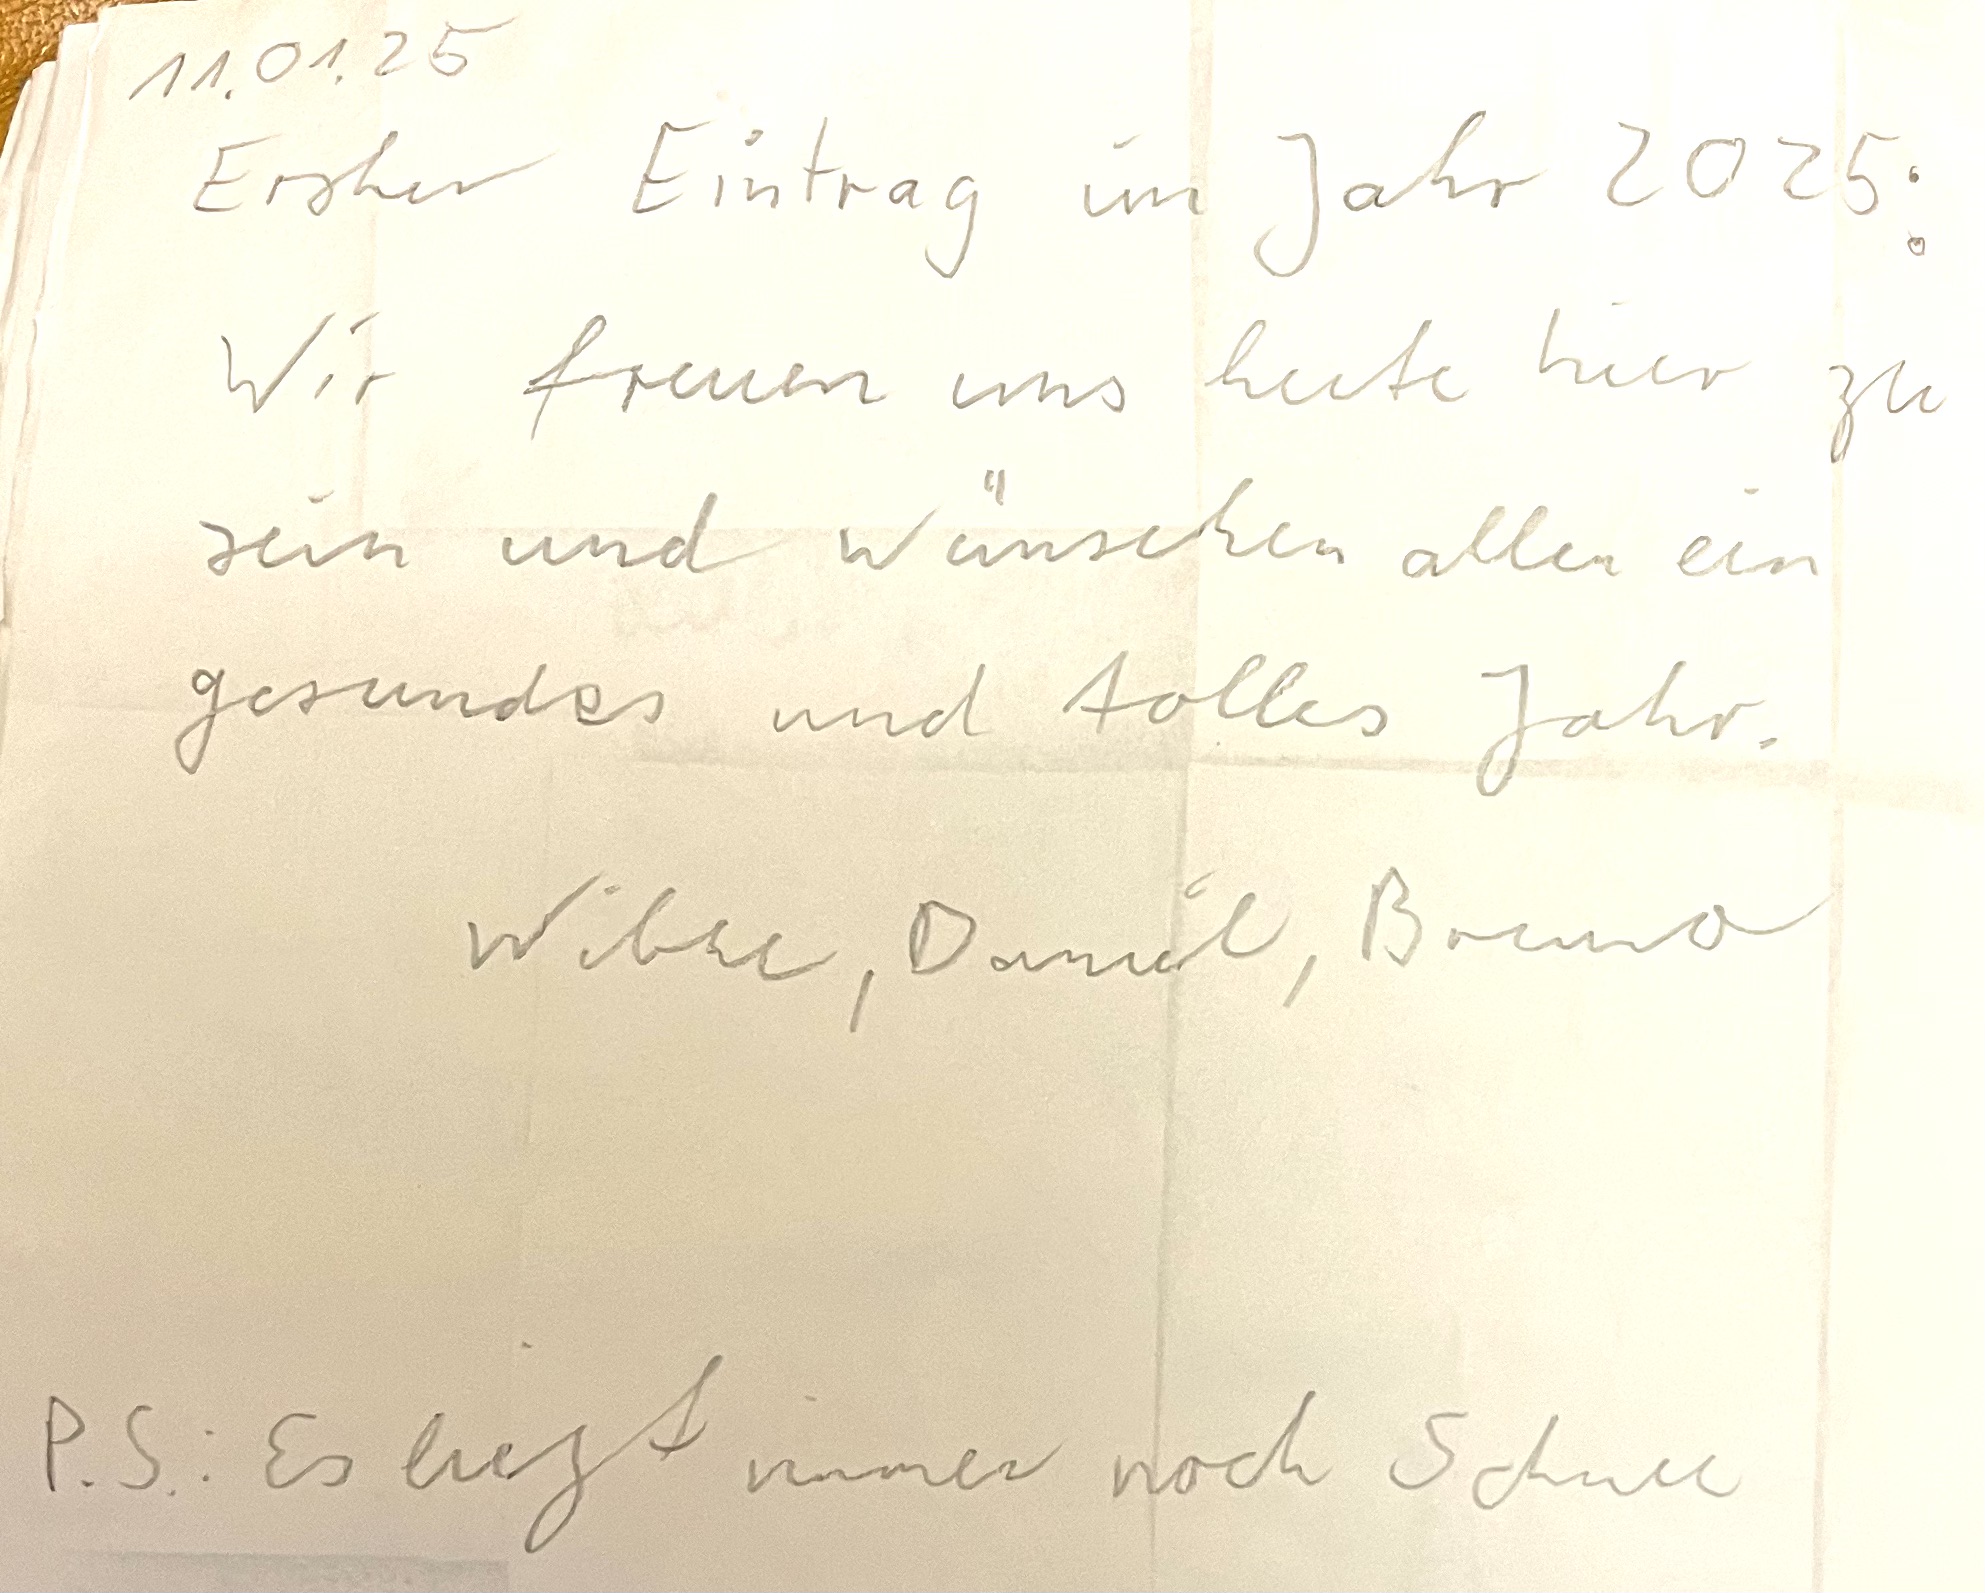 11.01.25
Erster Eintrag im Jahr 2025:
Wir freuen uns heute hier zu
sein und wünschen allen ein
gesundes und tolles Jahr.
Wibke, Daniel, Bruno
P.S.: Es liegt immer noch Schnee